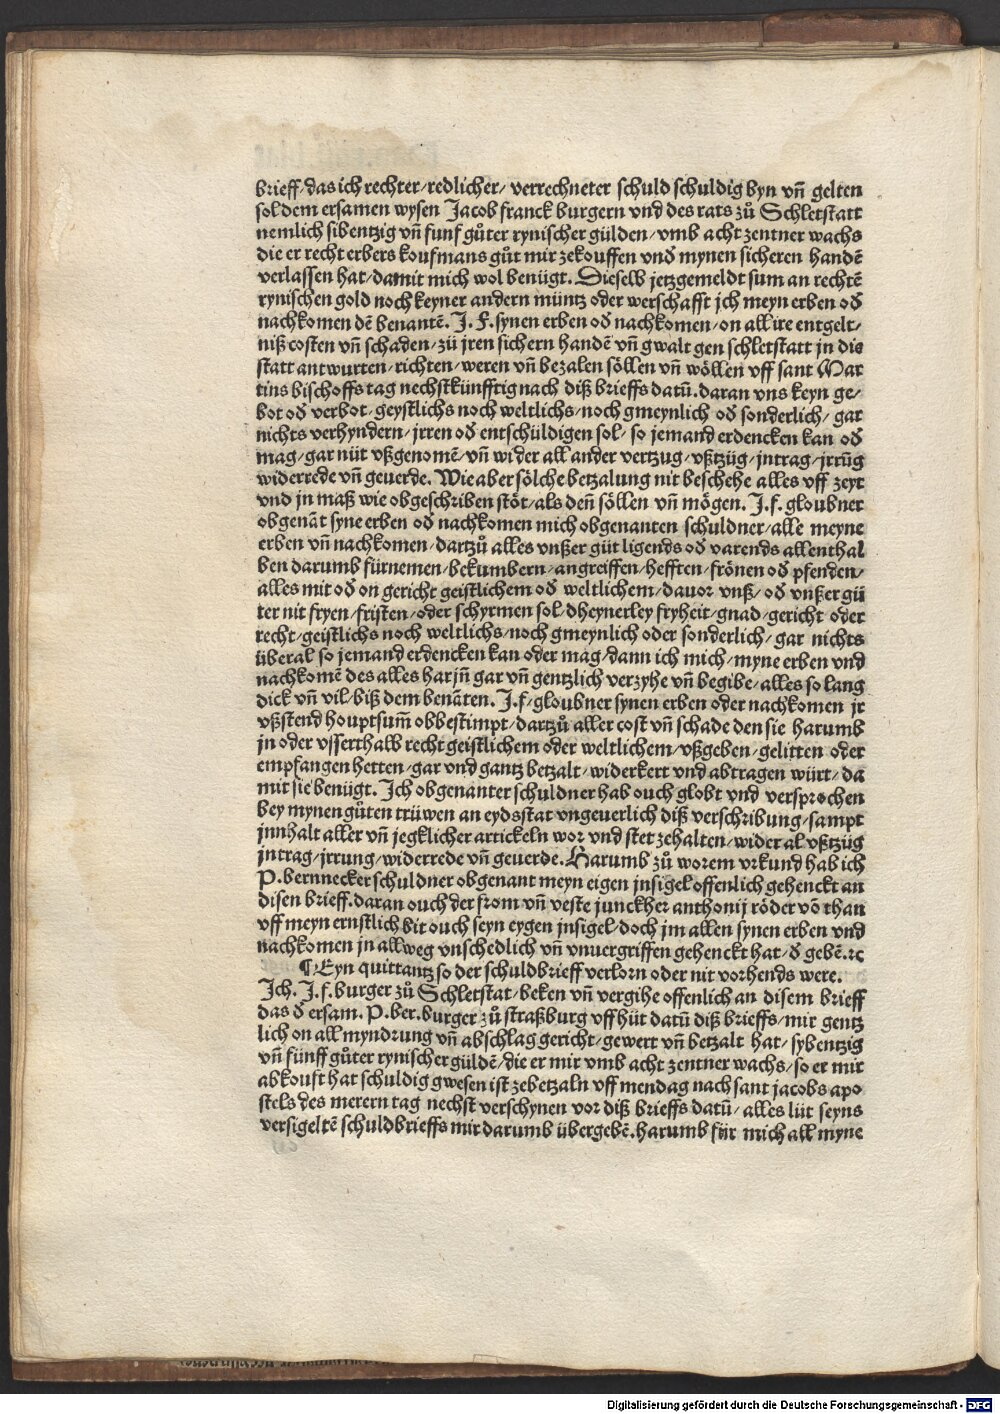 brieff/das ich rechter/redlicher/ verrechneter schuld schuldig byn vñ gelten
sol dem ersamen wysen Jacob franck burgern vnd des rats zů Schletstatt
nemlich sibentzig vñ funf gůter rynischer gülden/vmb acht zentner wachs
die er recht erbers koufmans gůt mir zekouffen vnd mynen sicheren handē
verlassen hat/damit mich wol benügt. Dieselb jetzgemeldt sum an rechtē
rynischen gold noch keyner andern müntz oder werschafft jch meyn erben oď
nachkomen dē benantē. J. F. synen erben oď nachkomen/on all ire entgelt/
niß costen vñ schaden/zü jren sichern handē vñ gwalt gen schletstatt jn die
statt antwurten/richten/weren vñ bezalen söllen vñ wöllen vff sant Mar
tins bischoffs tag nechstkünfftig nach diß brieffs datū. daran vns keyn ge/
bot oď verbot/geystlichs noch weltlichs/noch gmeynlich oď sonderlich/ gar
nichts verhyndern/jrren oď entschüldigen sol/ so jemand erdencken kan oď
mag/gar nüt vßgenomē/vñ wider all ander vertzug/vßtzüg/jntrag/jrrūg
widerrede vñ geuerde. Wie aber sölche betzalung nit beschehe alles vff zeyt
vnd jn maß wie obgeschriben stöt/als deñ söllen vñ mögen. J. f. gloubner
obgenāt syne erben oď nachkomen mich obgenanten schuldner/alle meyne
erben vñ nachkomen/dartzů alles vnßer güt ligends oď varends allenthal
ben darumb fürnemen/bekumbern/angreiffen/hefften/frönen oď pfenden/
alles mit oď on gericht geistlichem oď weltlichem/dauor vnß/ oď vnßer gü
ter nit fryen/fristen/oder schyrmen sol/dheynerley fryheit/gnad/gericht oder
recht/geistlichs noch weltlichs/noch gmeynlich oder sonderlich/ gar nichts
überal so jemand erdencken kan oder mag/dann ich mich/myne erben vnd
nachkomē des alles harjñ gar vñ gentzlich verzyhe vñ begibe/alles so lang
dick vñ vil/biß dem benāten. J. f/gloubner synen erben oder nachkomen jr
vßstend houptsum̃ obbestimpt/dartzů aller cost vñ schade den sie harumb
jn oder vsserthalb recht geistlichem oder weltlichem/vßgeben/gelitten oder
empfangen hetten/gar vnd gantz betzalt/widerkert vnd abtragen würt/ da
mit sie benügt. Jch obgenanter schuldner hab ouch globt vnd versprochen
bey mynen gůten trüwen an eydsstat vngeuerlich diß verschribung/sampt
jnnhalt aller vñ jegklicher artickeln wor vnd stet zehalten/wider al vßtzüg
jntrag/jrrung/widerrede vñ geuerde. Harumb zů worem vrkund hab ich
P. bernnecker schuldner obgenant meyn eigen jnsigel offenlich gehenckt an
disen brieff. daran ouch der from vñ veste junckher anthonij röder vō than
vff meyn ernstlich bit ouch seyn eygen jnsigel/doch jm allen synen erben vnd
nachkomen jn allweg vnschedlich vñ vnuergriffen gehenckt hat/ď gebē. ꝛc
¶ Eyn quittantz so der schuldbrieff verlorn oder nit vorhends were.
Jch. J. f. burger zů Schletstat/beken vñ vergihe offenlich an disem brieff
das ď ersam. P. ber. burger zů straßburg vff hüt datū diß brieffs/mir gentz
lich on all myndrung vñ abschlag gericht/gewert vñ betzalt hat/ sybentzig
vñ fünff gůter rynischer güldē/die er mir vmb acht zentner wachs/so er mir
abkouft hat schuldig gwesen ist zebetzaln vff mendag nach sant jacobs apo
stels des merern tag nechst verschynen vor diß brieffs datū/ alles lüt seyns
versigeltē schuldbrieffs mir darumb übergebē. harumb für mich all myne
Digitalisierung gefördert durch die Deutsche Forschungsgemeinschaft - DFG